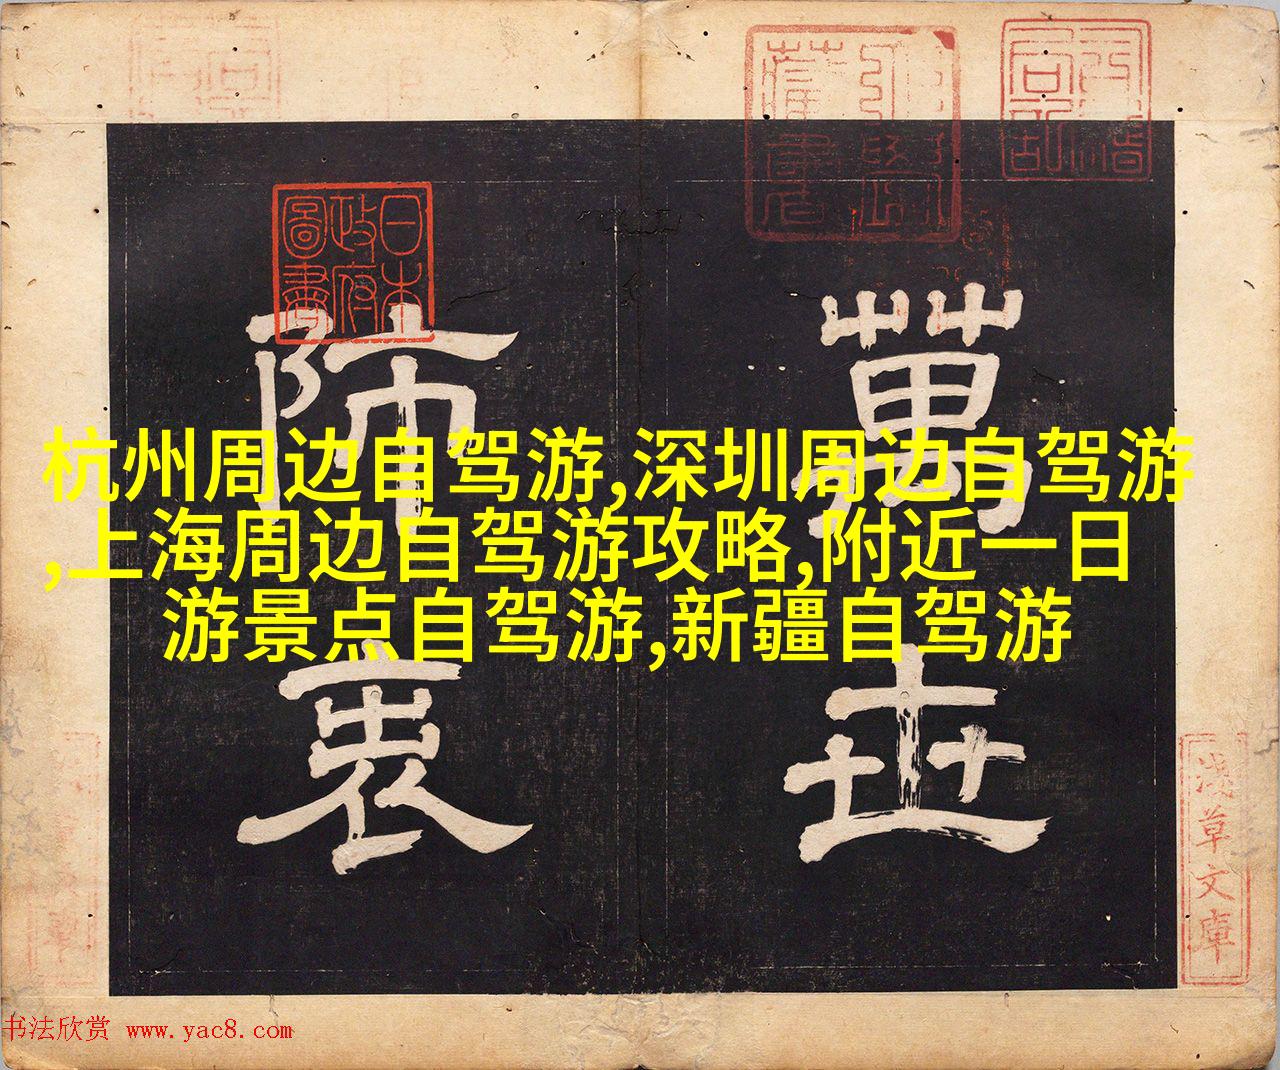 杭州周边自驾游,深圳周边自驾游
,上海周边自驾游攻略,附近一日
游景点自驾游,新疆自驾游
萬世
師表
日本
政府
圖書
淺草文庫
书法欣赏 www.yac8.com